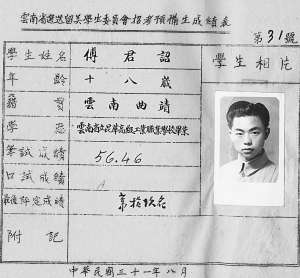 雲南省選送留美學生委員會招考預備生成績表
第31號
學生姓名 傅君詔 學生相片
年齡 十八歲
籍貫 雲南曲靖
學歷 雲南省立昆華高級工業職業學校畢業
筆試成績 56.46
口試成績 A
最後評定成績
附記
中華民國三十一年八月